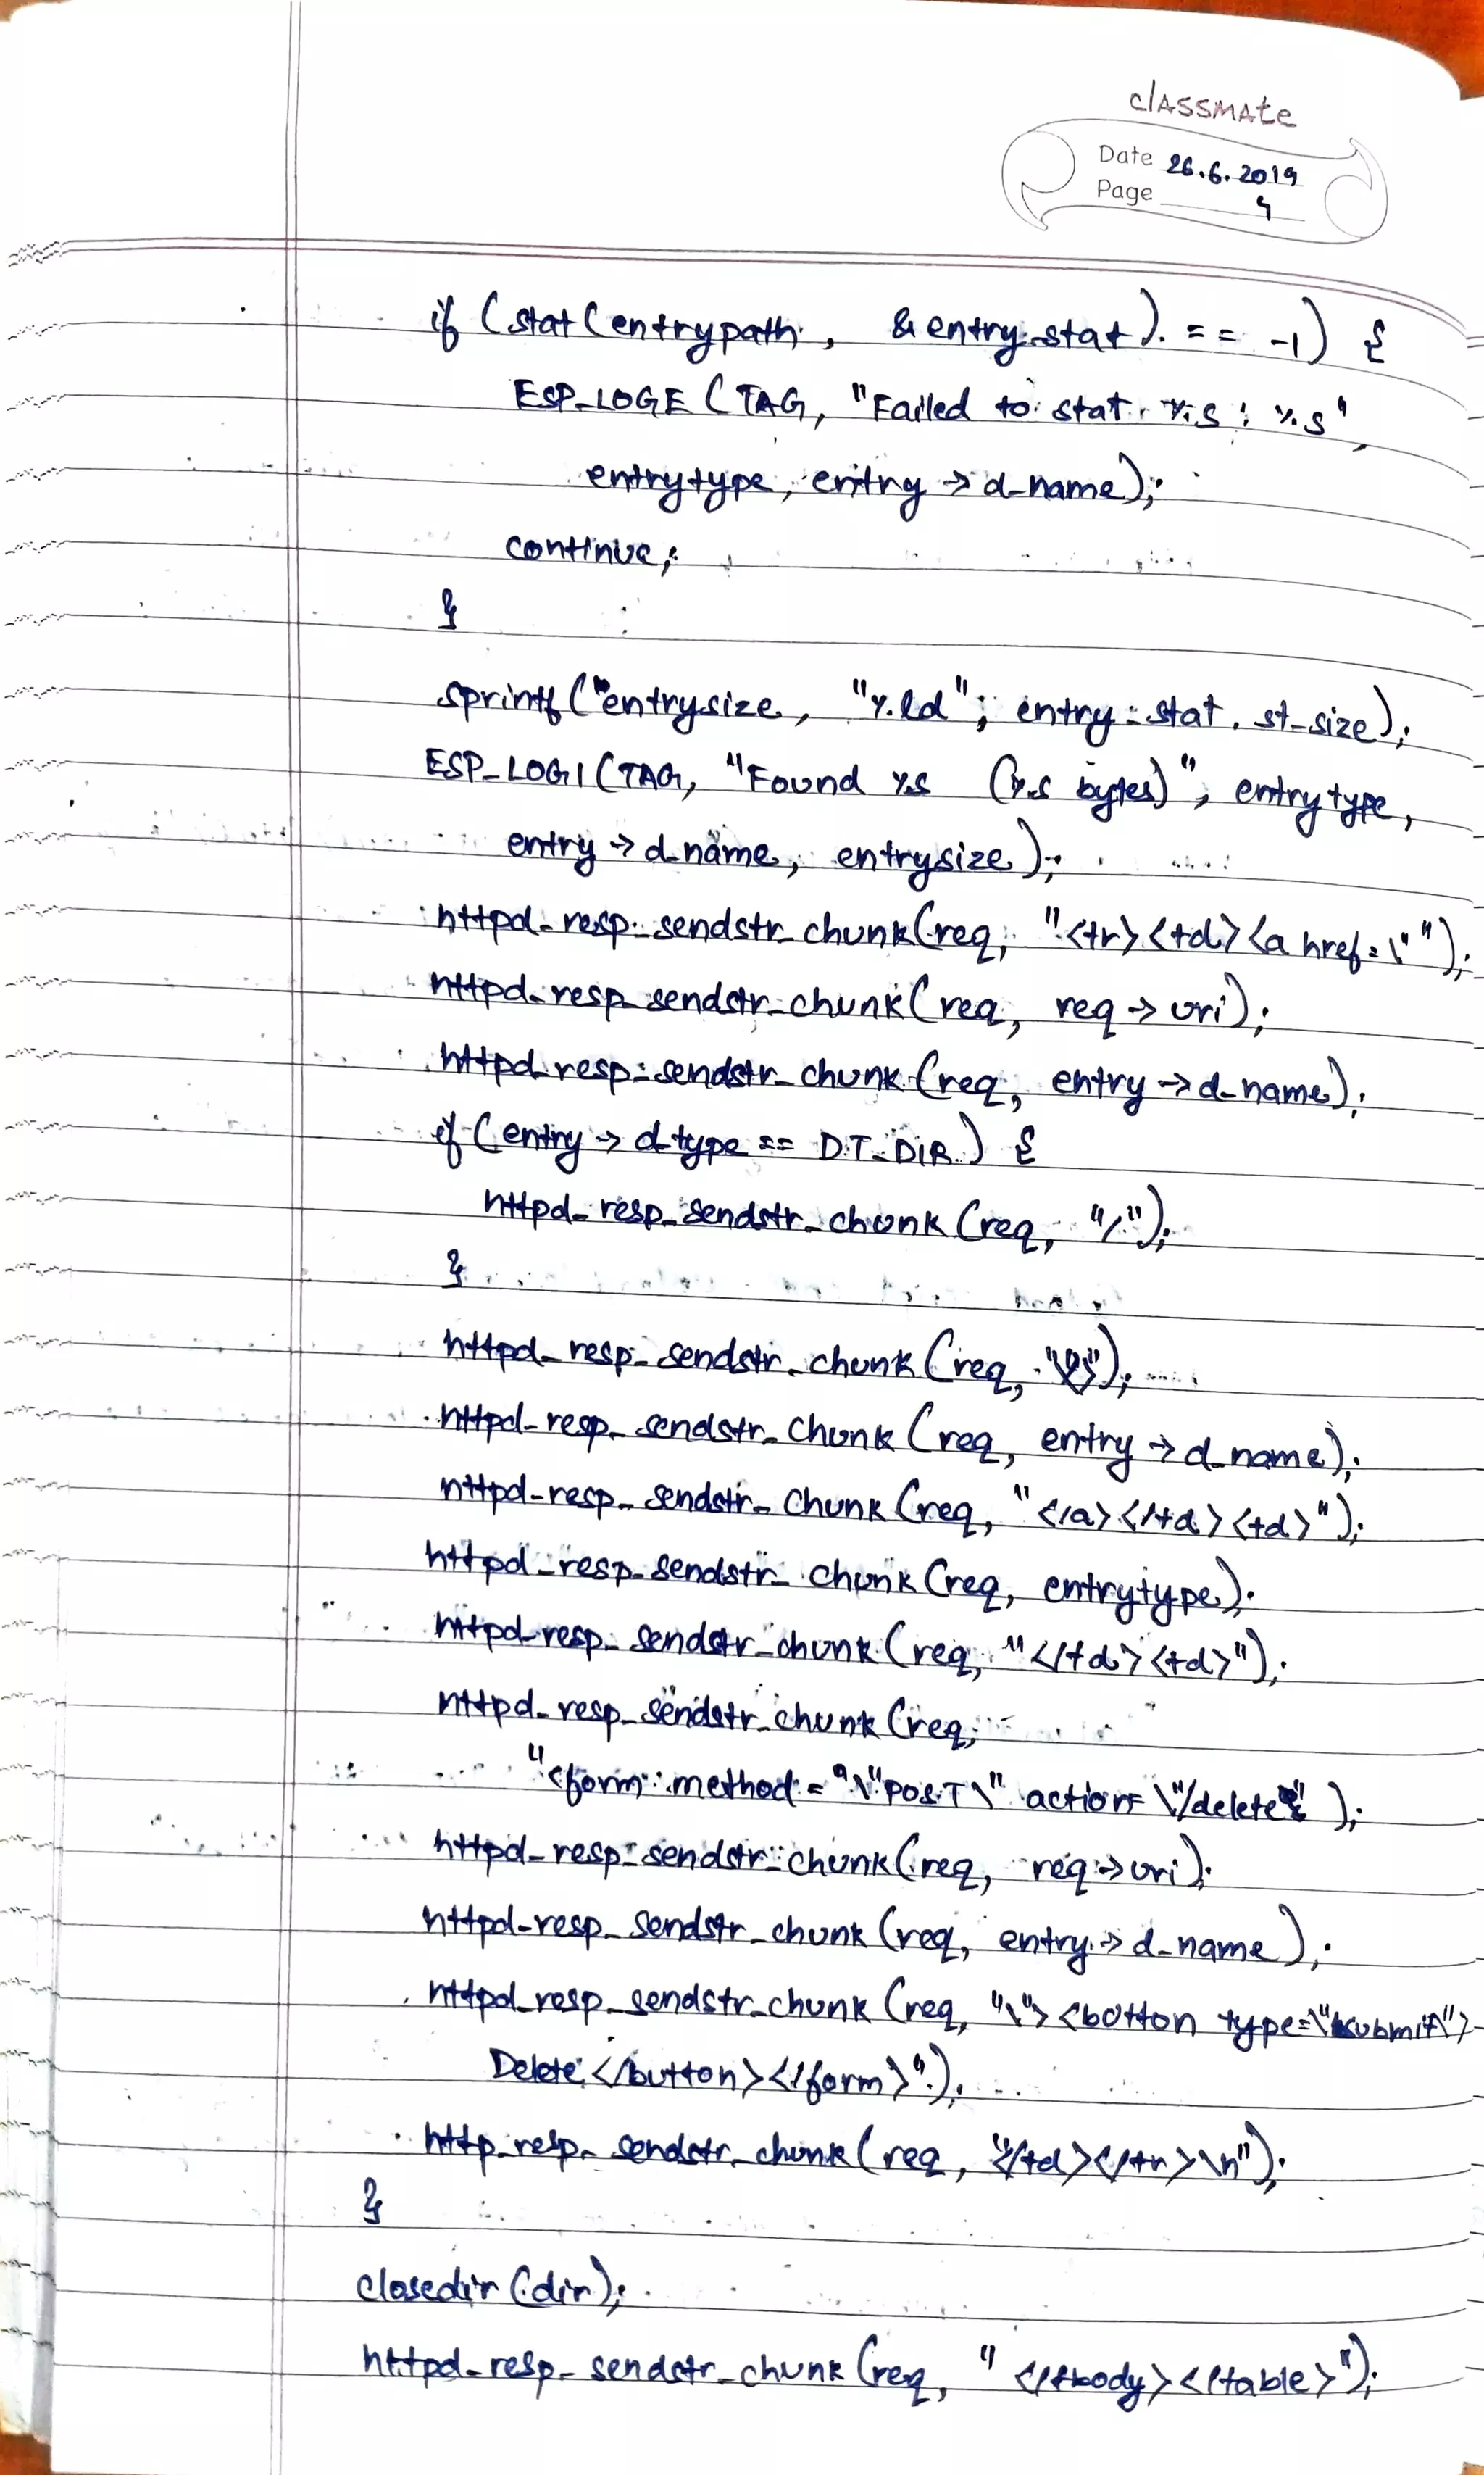 classmate
Date 26.6.2019
Page 4
if (stat(entrypath, &entry_stat) == -1) {
ESP_LOGE (TAG, "Failed to stat %s : %s",
entrytype, entry->d_name);
continue;
}
sprintf(entrysize, "%ld", entry_stat.st_size);
ESP_LOGI(TAG, "Found %s (%s bytes)", entrytype,
entry->d_name, entrysize);
httpd_resp_sendstr_chunk(req, "<tr><td><a href=\"");
httpd_resp_sendstr_chunk(req, req->uri);
httpd_resp_sendstr_chunk(req, entry->d_name);
if (entry->d_type == DT_DIR) {
httpd_resp_sendstr_chunk(req, "/");
}
httpd_resp_sendstr_chunk(req,
httpd_resp_sendstr_chunk(req, entry->d_name);
httpd_resp_sendstr_chunk(req, "</a></td><td>");
httpd_resp_sendstr_chunk(req, entrytype);
httpd_resp_sendstr_chunk(req, "</td><td>");
httpd_resp_sendstr_chunk(req,
"<form method="\"POST\" action=\"/delete" );
httpd_resp_sendstr_chunk(req, req->uri);
httpd_resp_sendstr_chunk(req, entry->d_name);
httpd_resp_sendstr_chunk(req, "\"><button type=\"submit\">
Delete</button></form>");
http_resp_sendstr_chunk(req, "</td></tr>\n");
}
closedir(dir);
httpd_resp_sendstr_chunk(req, "</tbody></table>");